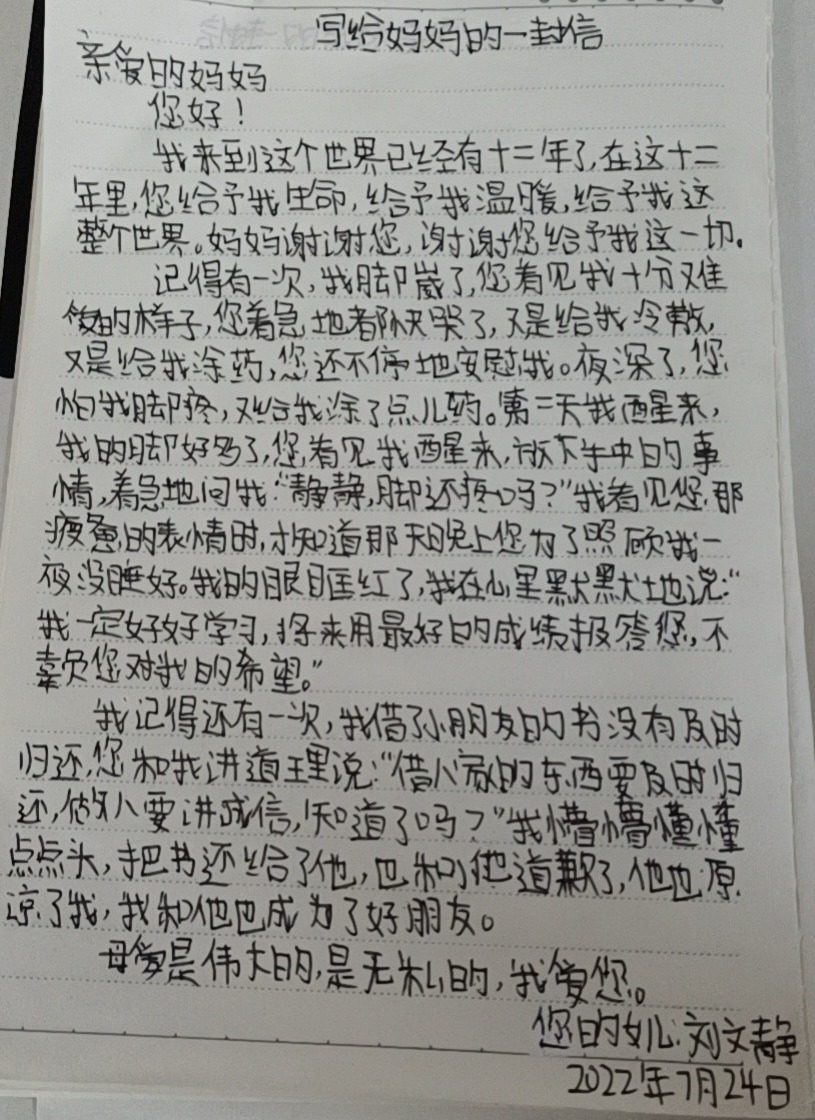 写给妈妈的一封信
亲爱的妈妈
您好！
我来到这个世界已经有十二年了,在这十二
年里,您给予我生命,给予我温暖,给予我这
整个世界。妈妈谢谢您,谢谢您给予我这一切。
记得有一次,我脚崴了,您看见我十分难
受的样子,您着急地都快哭了,又是给我冷敷,
又是给我涂药,您还不停地安慰我。夜深了,您
怕我脚疼,又给我涂了点儿药。第二天我醒来,
我的脚好多了,您看见我醒来,放下手中的事
情,着急地问我:“静静,脚还疼吗?”我看见您那
疲惫的表情时,才知道那天晚上您为了照顾我一
夜没睡好。我的眼眶红了,我在心里默默地说:“
我一定好好学习,将来用最好的成绩报答您,不
辜负您对我的希望。”
我记得还有一次,我借了小朋友的书没有及时
归还,您和我讲道理说:“借人家的东西要及时归
还,做人要讲诚信,知道了吗?”我懵懵懂懂
点点头,把书还给了他,也和他道歉了,他也原
谅了我,我和他也成为了好朋友。
母爱是伟大的,是无私的,我爱您。
您的女儿:刘文静
2022年7月24日